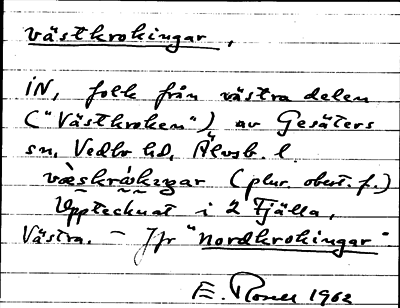 västkrokingar,
IN, folk från västra delen
("Västkroken") av Gesäters
sn, Vedbo hd, Älvsb. l.
(plur. obest. f.)
Upptecknat i 2 Fjälla,
Västra. – Jfr "nordkrokingar"
E. 1962